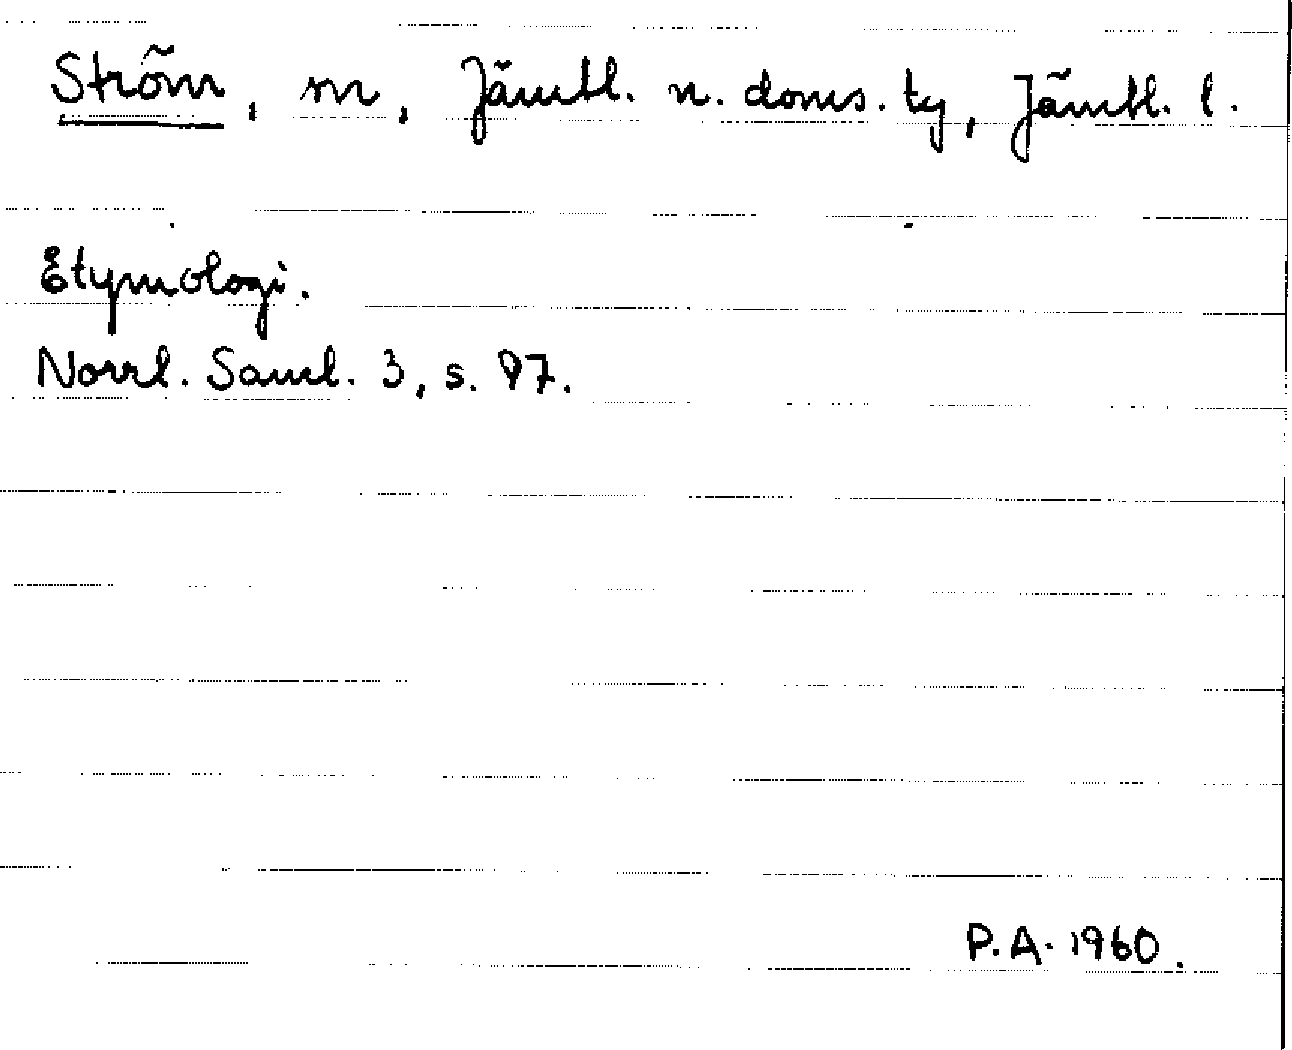 Ström, m, Jämtl. n. doms. ty, Jämtl. l.
Etymologi.
Norrl. Saml. 3, s. 97.
P.A. 1960.